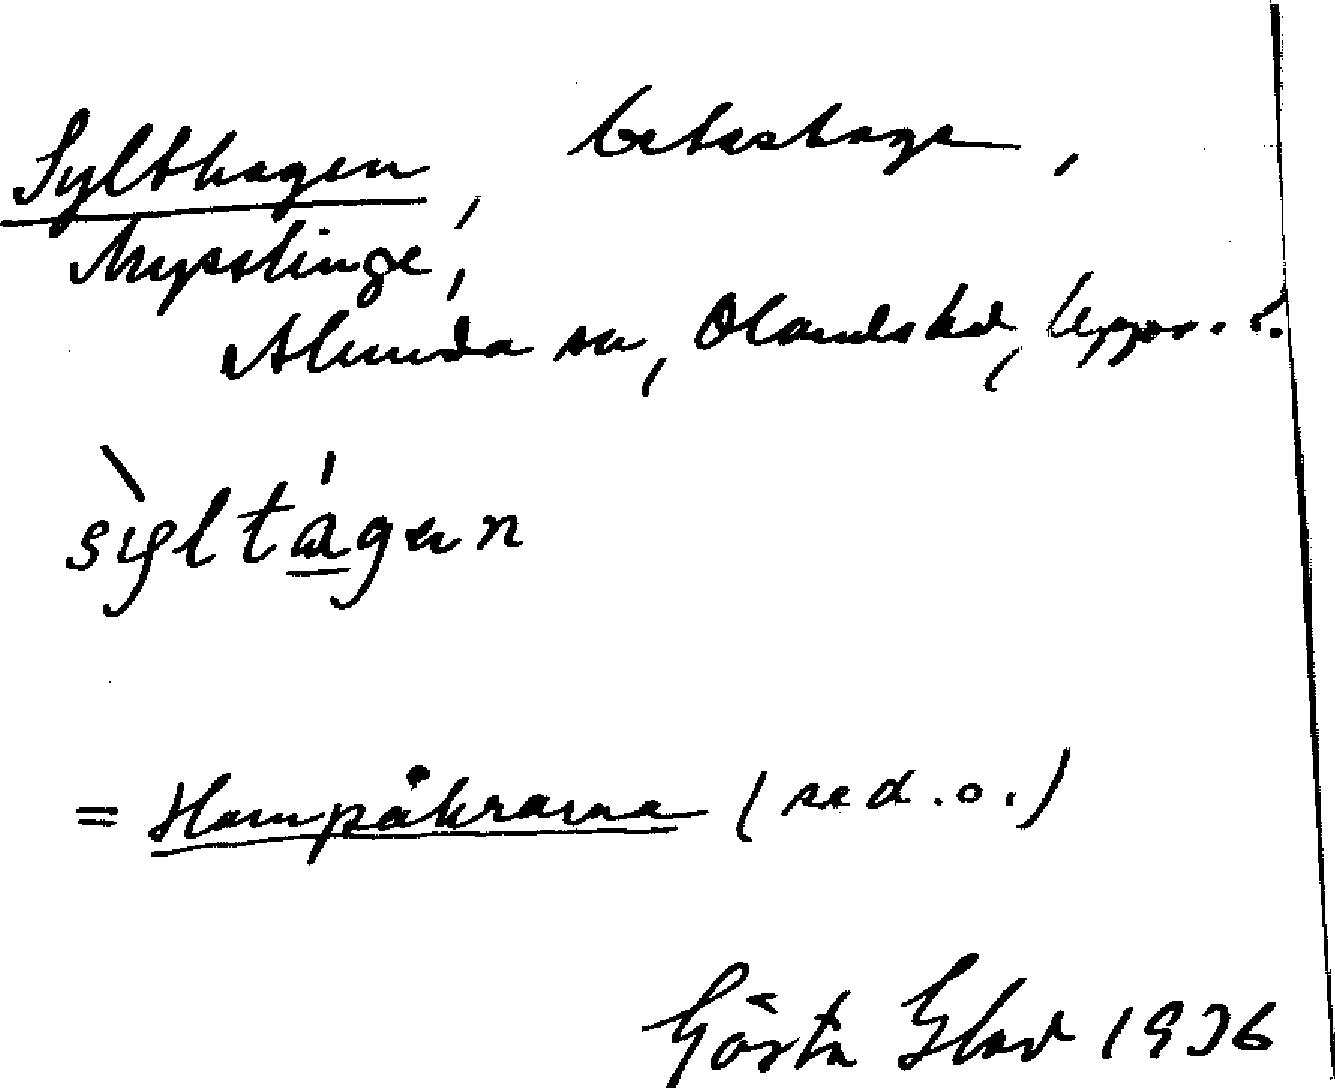 Sylthagen, beteshage,
Mysslinge,
Alunda sn, Olands hd, Upps. l.
syltagen
= Hampåkrarna (se d. o.)
Gösta 1936